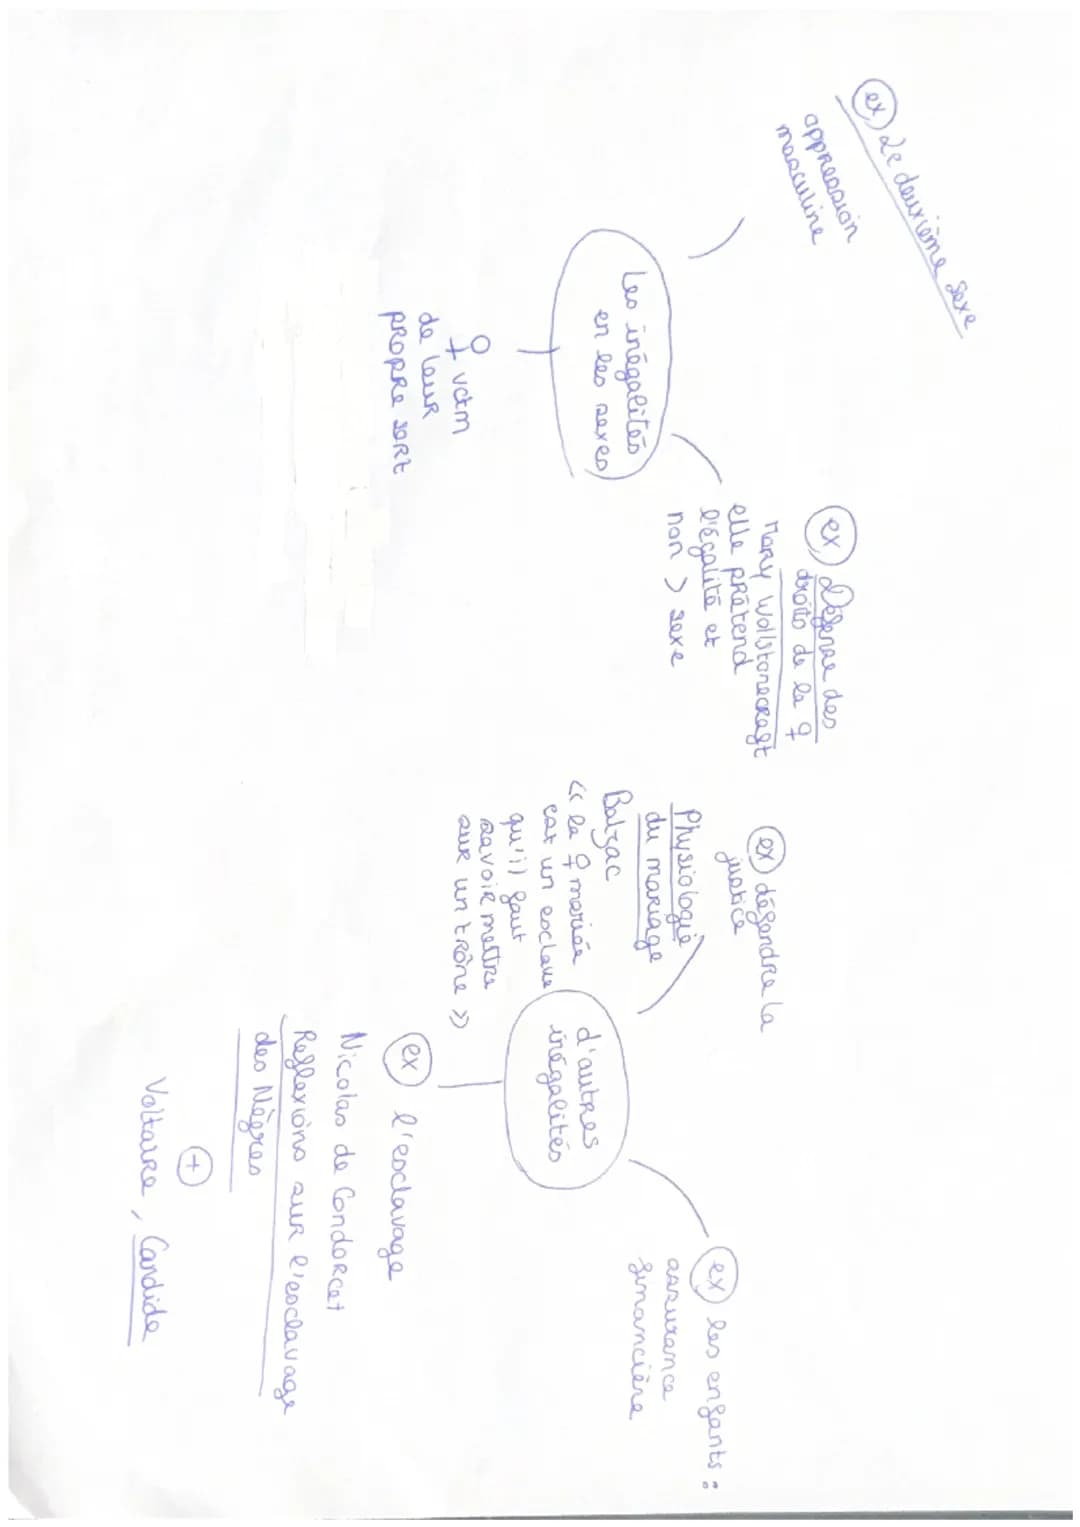 ex Le deuxième sexe
oppression
masculine
Les inégalités
en les sexes
♀ vctm
de leur
propre sort
ex Défense des
droits de la ♀
Mary Wollstonecraft
elle prétend
l'égalité et
non > sexe
ex défendre la
justice
Physiologie
du mariage
Balzac
« la ♀ mariée
est un esclave
qu'il faut
savoir mettre
sur un trône »
d'autres
inégalités
ex l'esclavage
Nicolas de Condorcet
Reflexions sur l'esclavage
des Nègres
+
Voltaire, Candide
ex les enfants :
assurance
financière